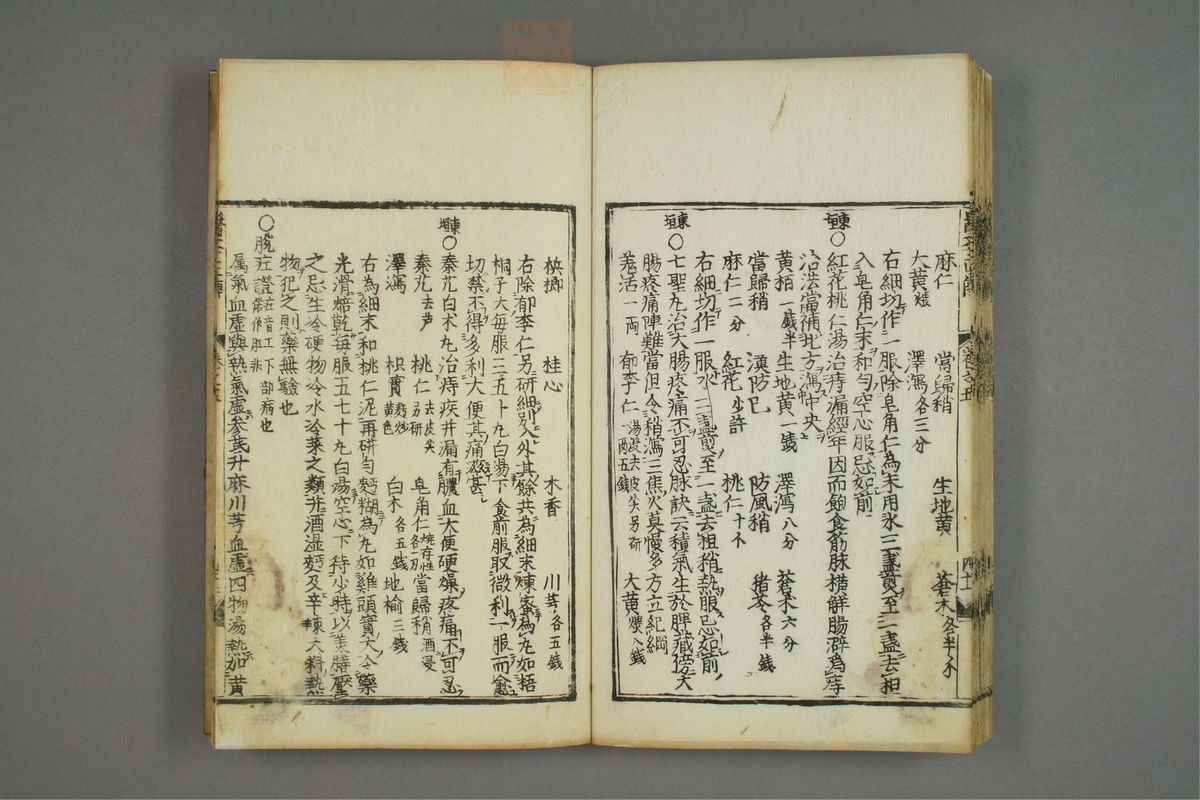 麻仁 當歸稍 生地黃 蒼术各半分
大黃煨 澤瀉各三分
右細切作一服除皂角仁為末用水三盞煎至一盞去柤
入皂角仁末和勻空心服忌如前
東垣○紅花桃仁湯治痔漏經年因而飽食筋脉橫解腸澼為痔
治法當補北方瀉中央
黃栢一錢半 生地黃一錢 澤瀉八分 蒼术六分
當歸稍 漢防己 防風稍 猪苓各半錢
麻仁二分 紅花少許 桃仁十个
右細切作一服水二盞煎至一盞去柤稍熱服忌如前
東垣○七聖丸治大腸疼痛不可忍脉訣云積氣生於脾藏傍大
腸疼痛陣難當但令稍瀉三焦火莫慢多方立紀綱
羗活一兩 郁李仁湯浸去皮尖另研一兩五錢 大黃煨八錢
檳榔 桂心 木香 川芎各五錢
右除郁李仁另研細入外其餘共為細末煉蜜為丸如梧
桐子大每服三五十丸白湯下食前服取微利一服而愈
切禁不得多利大便其痛滋甚
東垣○秦艽白术丸治痔疾并漏有膿血大便硬燥疼痛不可忍
秦艽去芦 桃仁去皮尖另研 皂角仁燒存性各一兩 當歸稍酒浸
澤瀉 枳實麩炒黃色 白术各五錢 地榆三錢
右為細末和桃仁泥再研勻麪糊為丸如雞頭實大令藥
光滑焙乾每服五七十丸白湯空心下待少時以美膳壓
之忌生冷硬物冷水冷菜之類并酒濕麪及辛辣大料熱
物犯之則藥無驗也
○脫疘證疘音工下部病也俗作肛非
属氣血虛與熱氣虛參芪升麻川芎血虛四物湯熱加黃